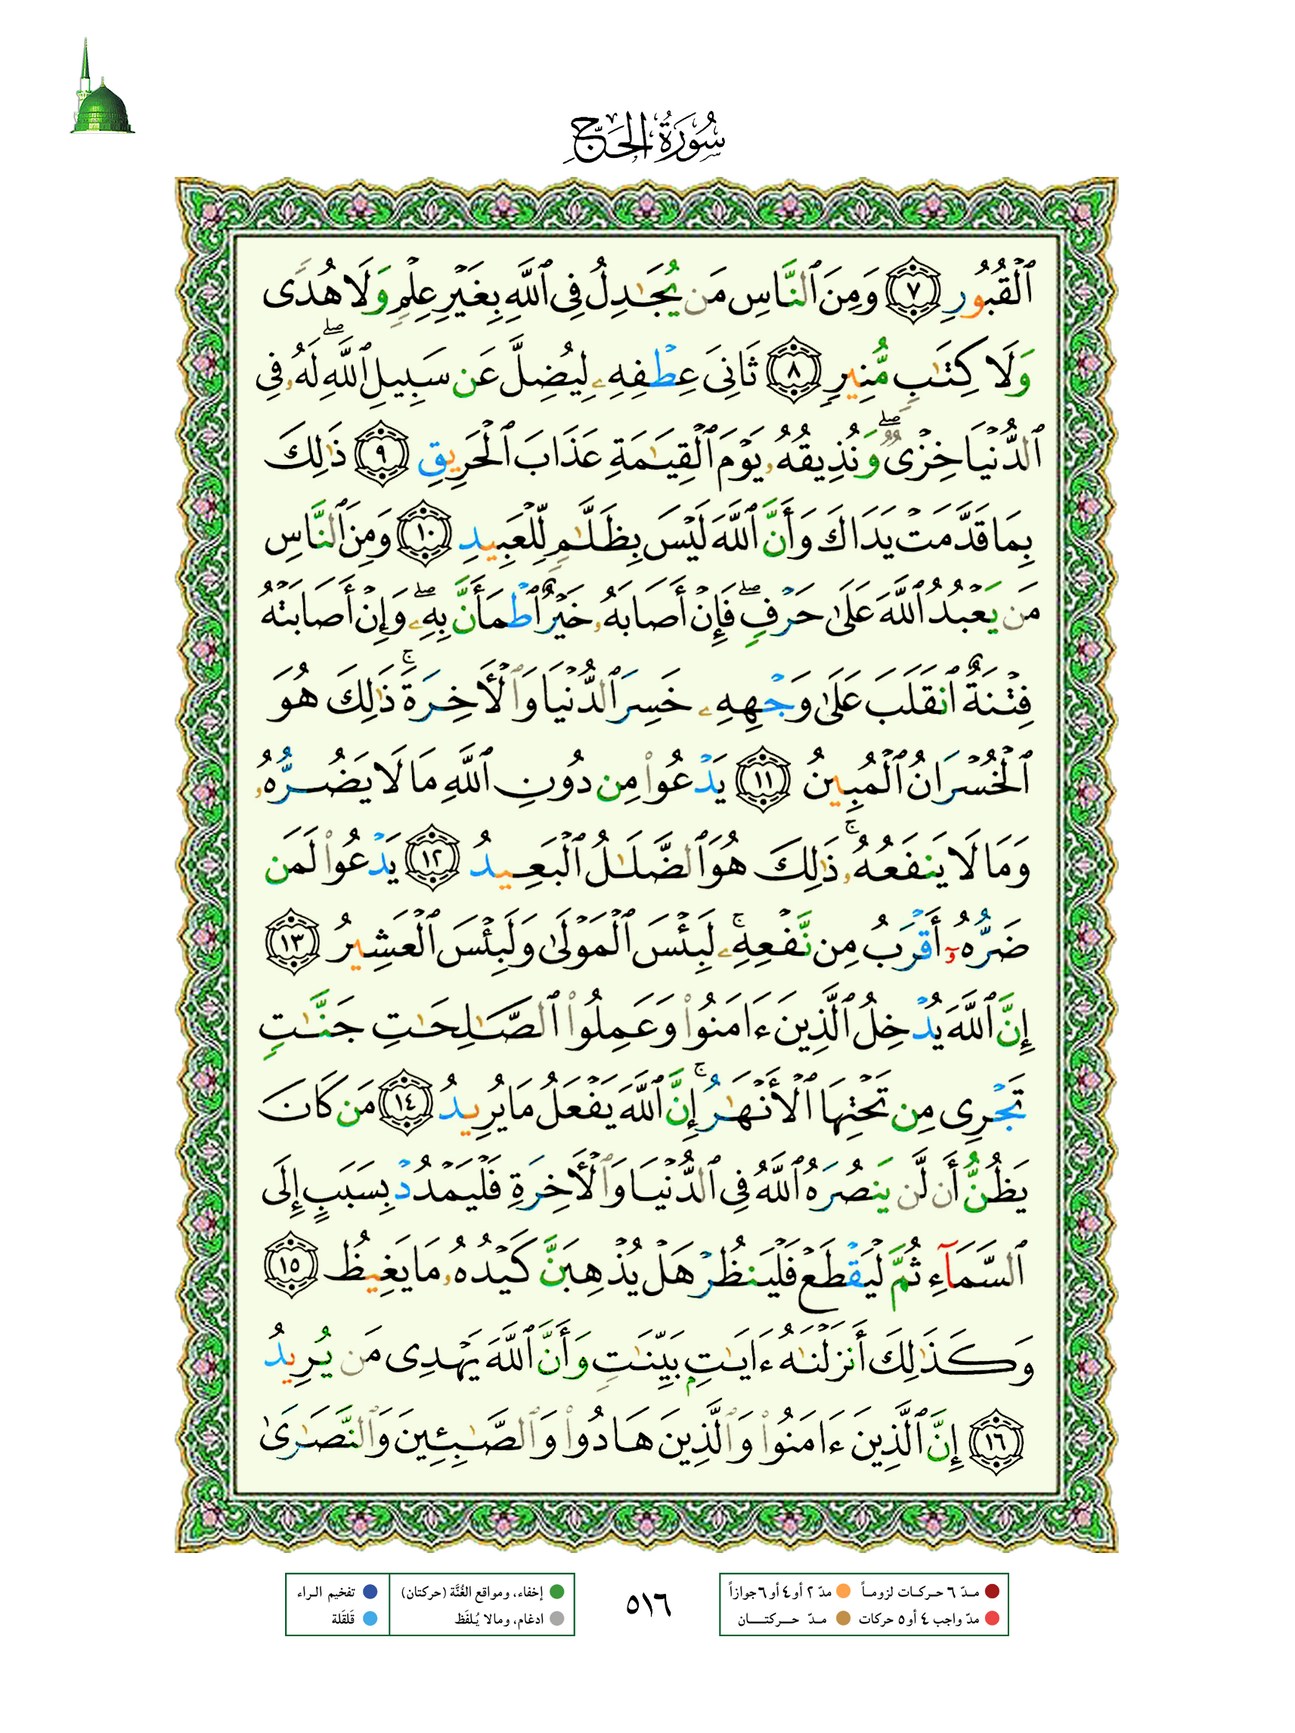 سُورَةُ الحَجّ
ٱلْقُبُورِ ۝٧ وَمِنَ ٱلنَّاسِ مَن يُجَـٰدِلُ فِى ٱللَّهِ بِغَيْرِ عِلْمٍ وَلَا هُدًى
وَلَا كِتَـٰبٍ مُّنِيرٍ ۝٨ ثَانِىَ عِطْفِهِۦ لِيُضِلَّ عَن سَبِيلِ ٱللَّهِ ۖ لَهُۥ فِى
ٱلدُّنْيَا خِزْىٌ ۖ وَنُذِيقُهُۥ يَوْمَ ٱلْقِيَـٰمَةِ عَذَابَ ٱلْحَرِيقِ ۝٩ ذَٰلِكَ
بِمَا قَدَّمَتْ يَدَاكَ وَأَنَّ ٱللَّهَ لَيْسَ بِظَلَّـٰمٍ لِّلْعَبِيدِ ۝١٠ وَمِنَ ٱلنَّاسِ
مَن يَعْبُدُ ٱللَّهَ عَلَىٰ حَرْفٍ ۖ فَإِنْ أَصَابَهُۥ خَيْرٌ ٱطْمَأَنَّ بِهِۦ ۖ وَإِنْ أَصَابَتْهُ
فِتْنَةٌ ٱنقَلَبَ عَلَىٰ وَجْهِهِۦ خَسِرَ ٱلدُّنْيَا وَٱلْأَخِرَةَ ۚ ذَٰلِكَ هُوَ
ٱلْخُسْرَانُ ٱلْمُبِينُ ۝١١ يَدْعُوا۟ مِن دُونِ ٱللَّهِ مَا لَا يَضُرُّهُۥ
وَمَا لَا يَنفَعُهُۥ ۚ ذَٰلِكَ هُوَ ٱلضَّلَـٰلُ ٱلْبَعِيدُ ۝١٢ يَدْعُوا۟ لَمَن
ضَرُّهُۥٓ أَقْرَبُ مِن نَّفْعِهِۦ ۚ لَبِئْسَ ٱلْمَوْلَىٰ وَلَبِئْسَ ٱلْعَشِيرُ ۝١٣
إِنَّ ٱللَّهَ يُدْخِلُ ٱلَّذِينَ ءَامَنُوا۟ وَعَمِلُوا۟ ٱلصَّـٰلِحَـٰتِ جَنَّـٰتٍ
تَجْرِى مِن تَحْتِهَا ٱلْأَنْهَـٰرُ ۚ إِنَّ ٱللَّهَ يَفْعَلُ مَا يُرِيدُ ۝١٤ مَن كَانَ
يَظُنُّ أَن لَّن يَنصُرَهُ ٱللَّهُ فِى ٱلدُّنْيَا وَٱلْأَخِرَةِ فَلْيَمْدُدْ بِسَبَبٍ إِلَى
ٱلسَّمَآءِ ثُمَّ لْيَقْطَعْ فَلْيَنظُرْ هَلْ يُذْهِبَنَّ كَيْدُهُۥ مَا يَغِيظُ ۝١٥
وَكَذَٰلِكَ أَنزَلْنَـٰهُ ءَايَـٰتٍۭ بَيِّنَـٰتٍ وَأَنَّ ٱللَّهَ يَهْدِى مَن يُرِيدُ
۝١٦ إِنَّ ٱلَّذِينَ ءَامَنُوا۟ وَٱلَّذِينَ هَادُوا۟ وَٱلصَّـٰبِـِٔينَ وَٱلنَّصَـٰرَىٰ
مـدّ ٦ حـركـات لزومـاً مدّ ٢ أو٤ أو ٦ جوازاً
مدّ واجب ٤ أو٥ حركات مـدّ حــركتــان
٥١٦
إخفاء، ومواقع الغُنَّة (حركتان) تفخيم الـراء
ادغام، ومالا يُـلفَظ قَلقَلة